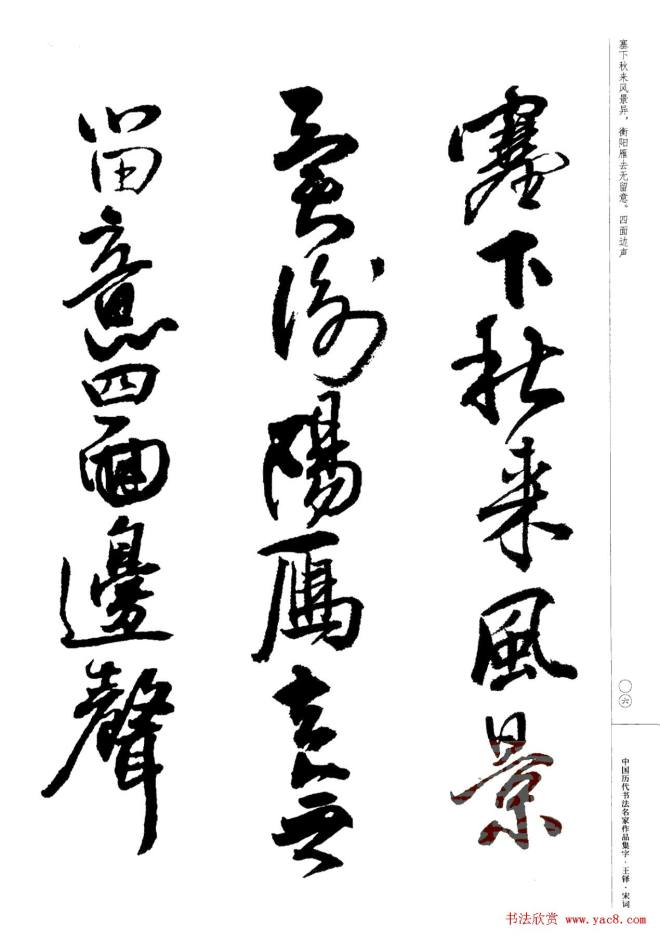 塞下秋来風景
異衡陽雁去無
留意四面邊聲
塞下秋来风景异，衡阳雁去无留意。四面边声
〇六
中国历代书法名家作品集字·王铎·宋词
书法欣赏 www.yac8.com